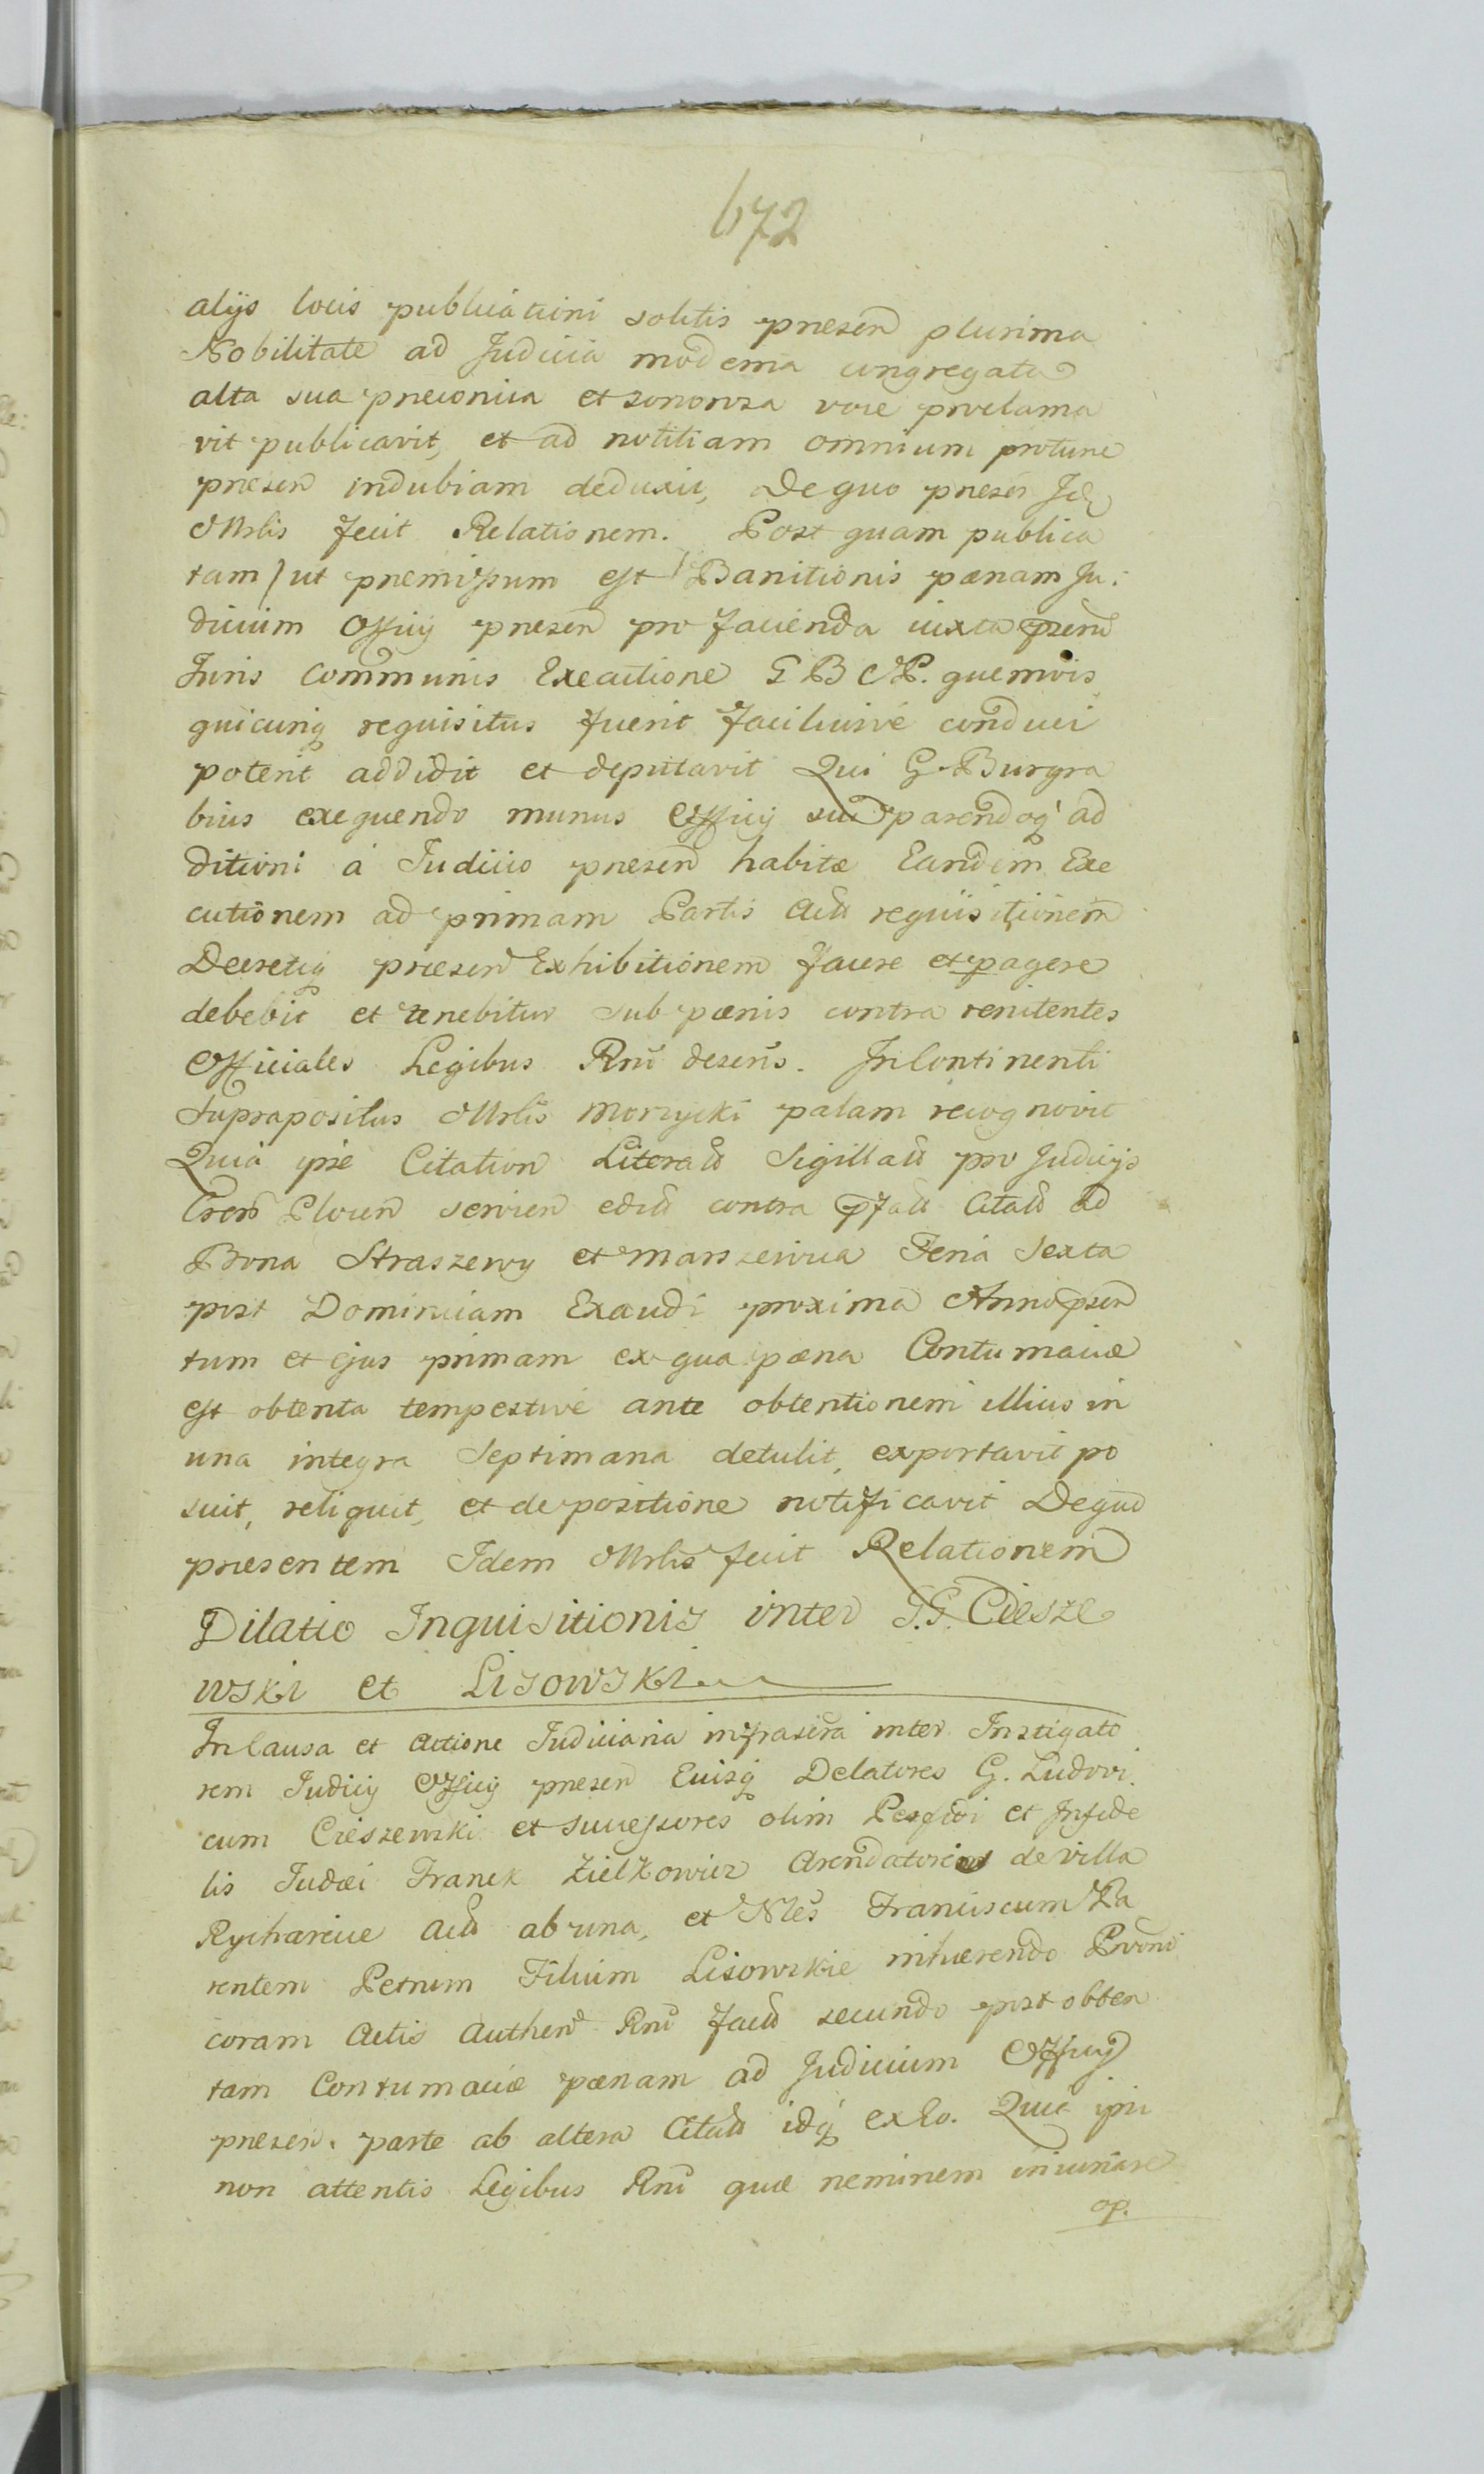 672
alijs locis publicationi solitis presen plurima
Nobilitate ad Judicia moderna congregata
alta sua preconica et sonorosa voce proclama
vit publicavit, et ad notitiam omnium protunc
presen indubiam deduxit, De quo presen Id
Mrlis fecit Relationem. Post quam publica
tam / ut premissum est / Banitionis pœnam Ju:
dicium Officij presen pro facienda iuxta
Juris Communis Executione G B P. quemvis
quicunq requisitus fuerit faciliusvé conduci
poterit addidit et deputavit Qui G Burgra
bius exequendo munus Officij sui parendoq ad
ditioni á Judicio presen habitæ Eandem Exe
cutionem ad primam Partis Act requisitionem
Decretiq presen Exhibitionem facere et pagere
debebit et tenebitur sub pœnis contra renitentes
Officiales Legibus Rni deseris. In Continenti
Suprapositus Mrlis Morzycki palam recognovit
Quia ipse Citation Literali Sigillati pro Judicijs
Plocen servien edit contra Citati ad
Bona Straszewy et Marszewica Feria Sexta
post Dominicam Exaudi proxima Anno psen
tum et ejus primam ex qua pœna Contumaciæ
est obtenta tempestivé ante obtentionem illius in
una integra Septimana detulit, exportavit po
suit, reliquit, et de positione notificavit De quo
presentem Idem Mrlis fecit Relationem
Dilatio Inquisitionis inter G.G. Ciesze
wski et Lisowski
In Causa et Actione Judiciaria infrascra inter Instigato
rem Judicij Officij presen Euisq Delatores G. Ludovi.
cum Cieszewski et Successores olim Perfidi et Infide
lis Judæi Franek Zielkowicz de villa
Rycharcice Act ab una, et Nles Franciscum Pa
rentem Petrum Filium Lisowskie inhærendo
coram Actis Authen Rni fact secundo post obten
tam Contumaciæ pœnam ad Judicium Officij
presen. parte ab altera Citati idq exEo. Quia ipsi
non attentis Legibus Rni quæ neminem iniuriare
op.